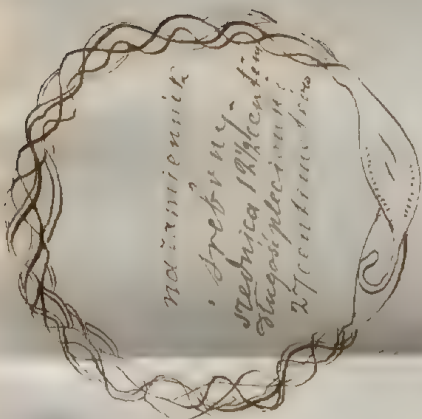 naramiennik
srebrny.
srednica 12½ centim
długość plecionki:
27 centimetrów